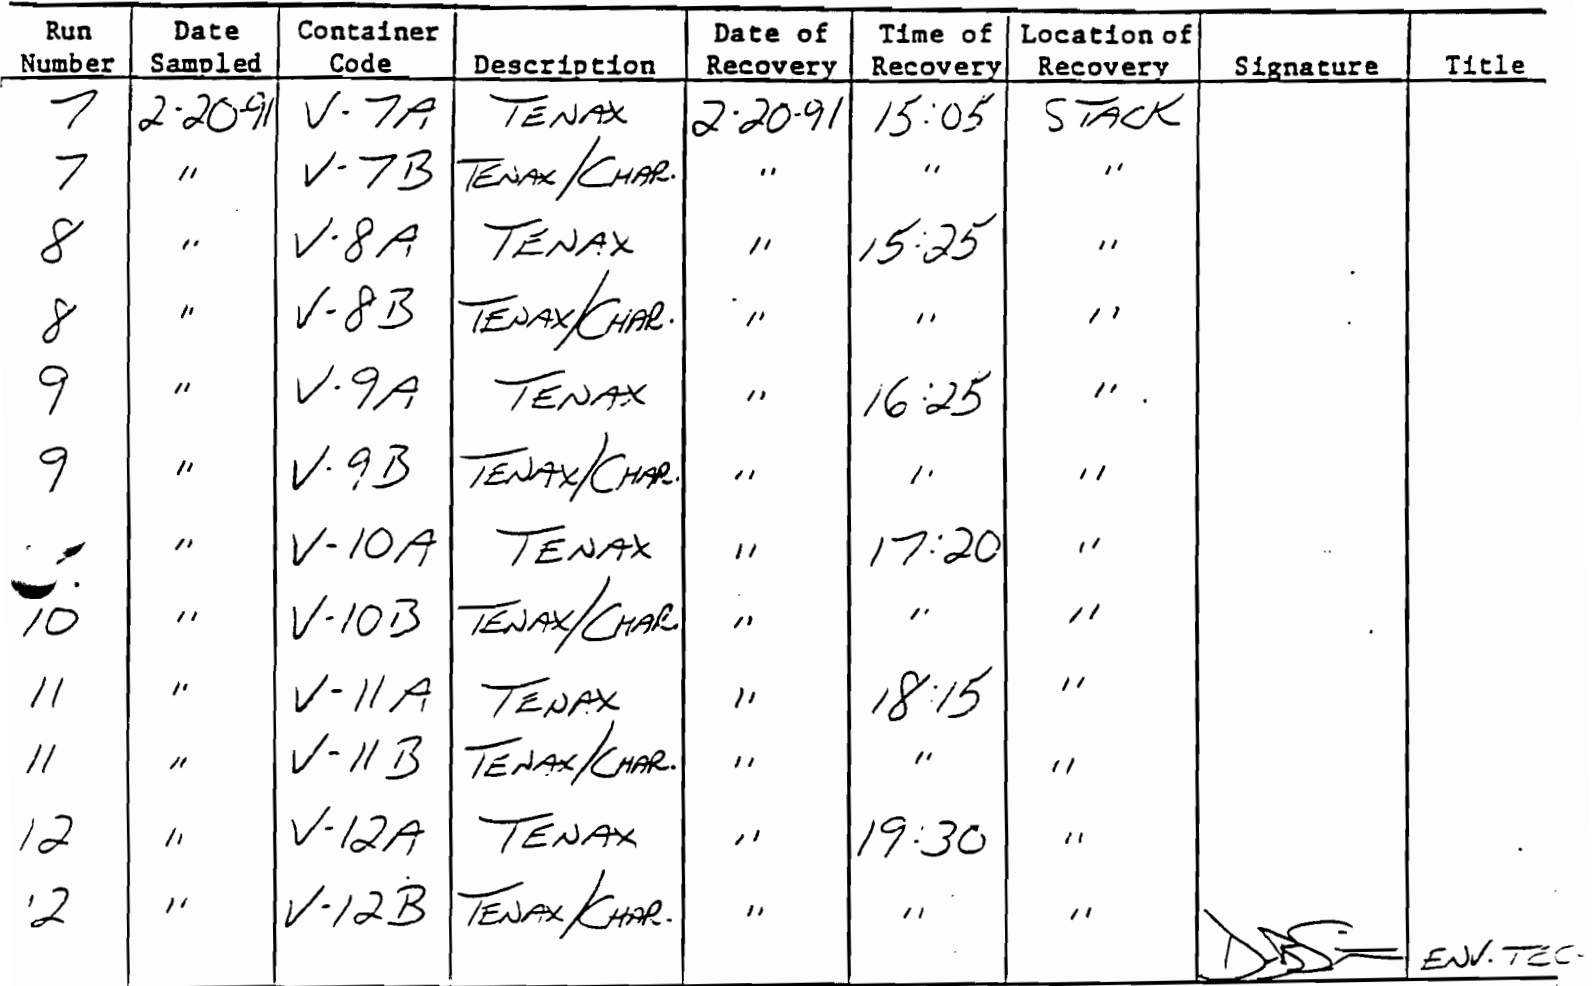 Run Number | Date Sampled | Container Code | Description | Date of Recovery | Time of Recovery | Location of Recovery | Signature | Title
7 | 2-20-91 | V-7A | TENAX | 2-20-91 | 15:05 | STACK
7 | " | V-7B | TENAX/CHAR. | " | " | "
8 | " | V-8A | TENAX | " | 15:25 | "
8 | " | V-8B | TENAX/CHAR. | " | " | "
9 | " | V-9A | TENAX | " | 16:25 | "
9 | " | V-9B | TENAX/CHAR. | " | " | "
" | V-10A | TENAX | " | 17:20 | "
10 | " | V-10B | TENAX/CHAR. | " | " | "
11 | " | V-11A | TENAX | " | 18:15 | "
11 | " | V-11B | TENAX/CHAR. | " | " | "
12 | " | V-12A | TENAX | " | 19:30 | "
12 | " | V-12B | TENAX/CHAR. | " | " | "
ENV. TEC.